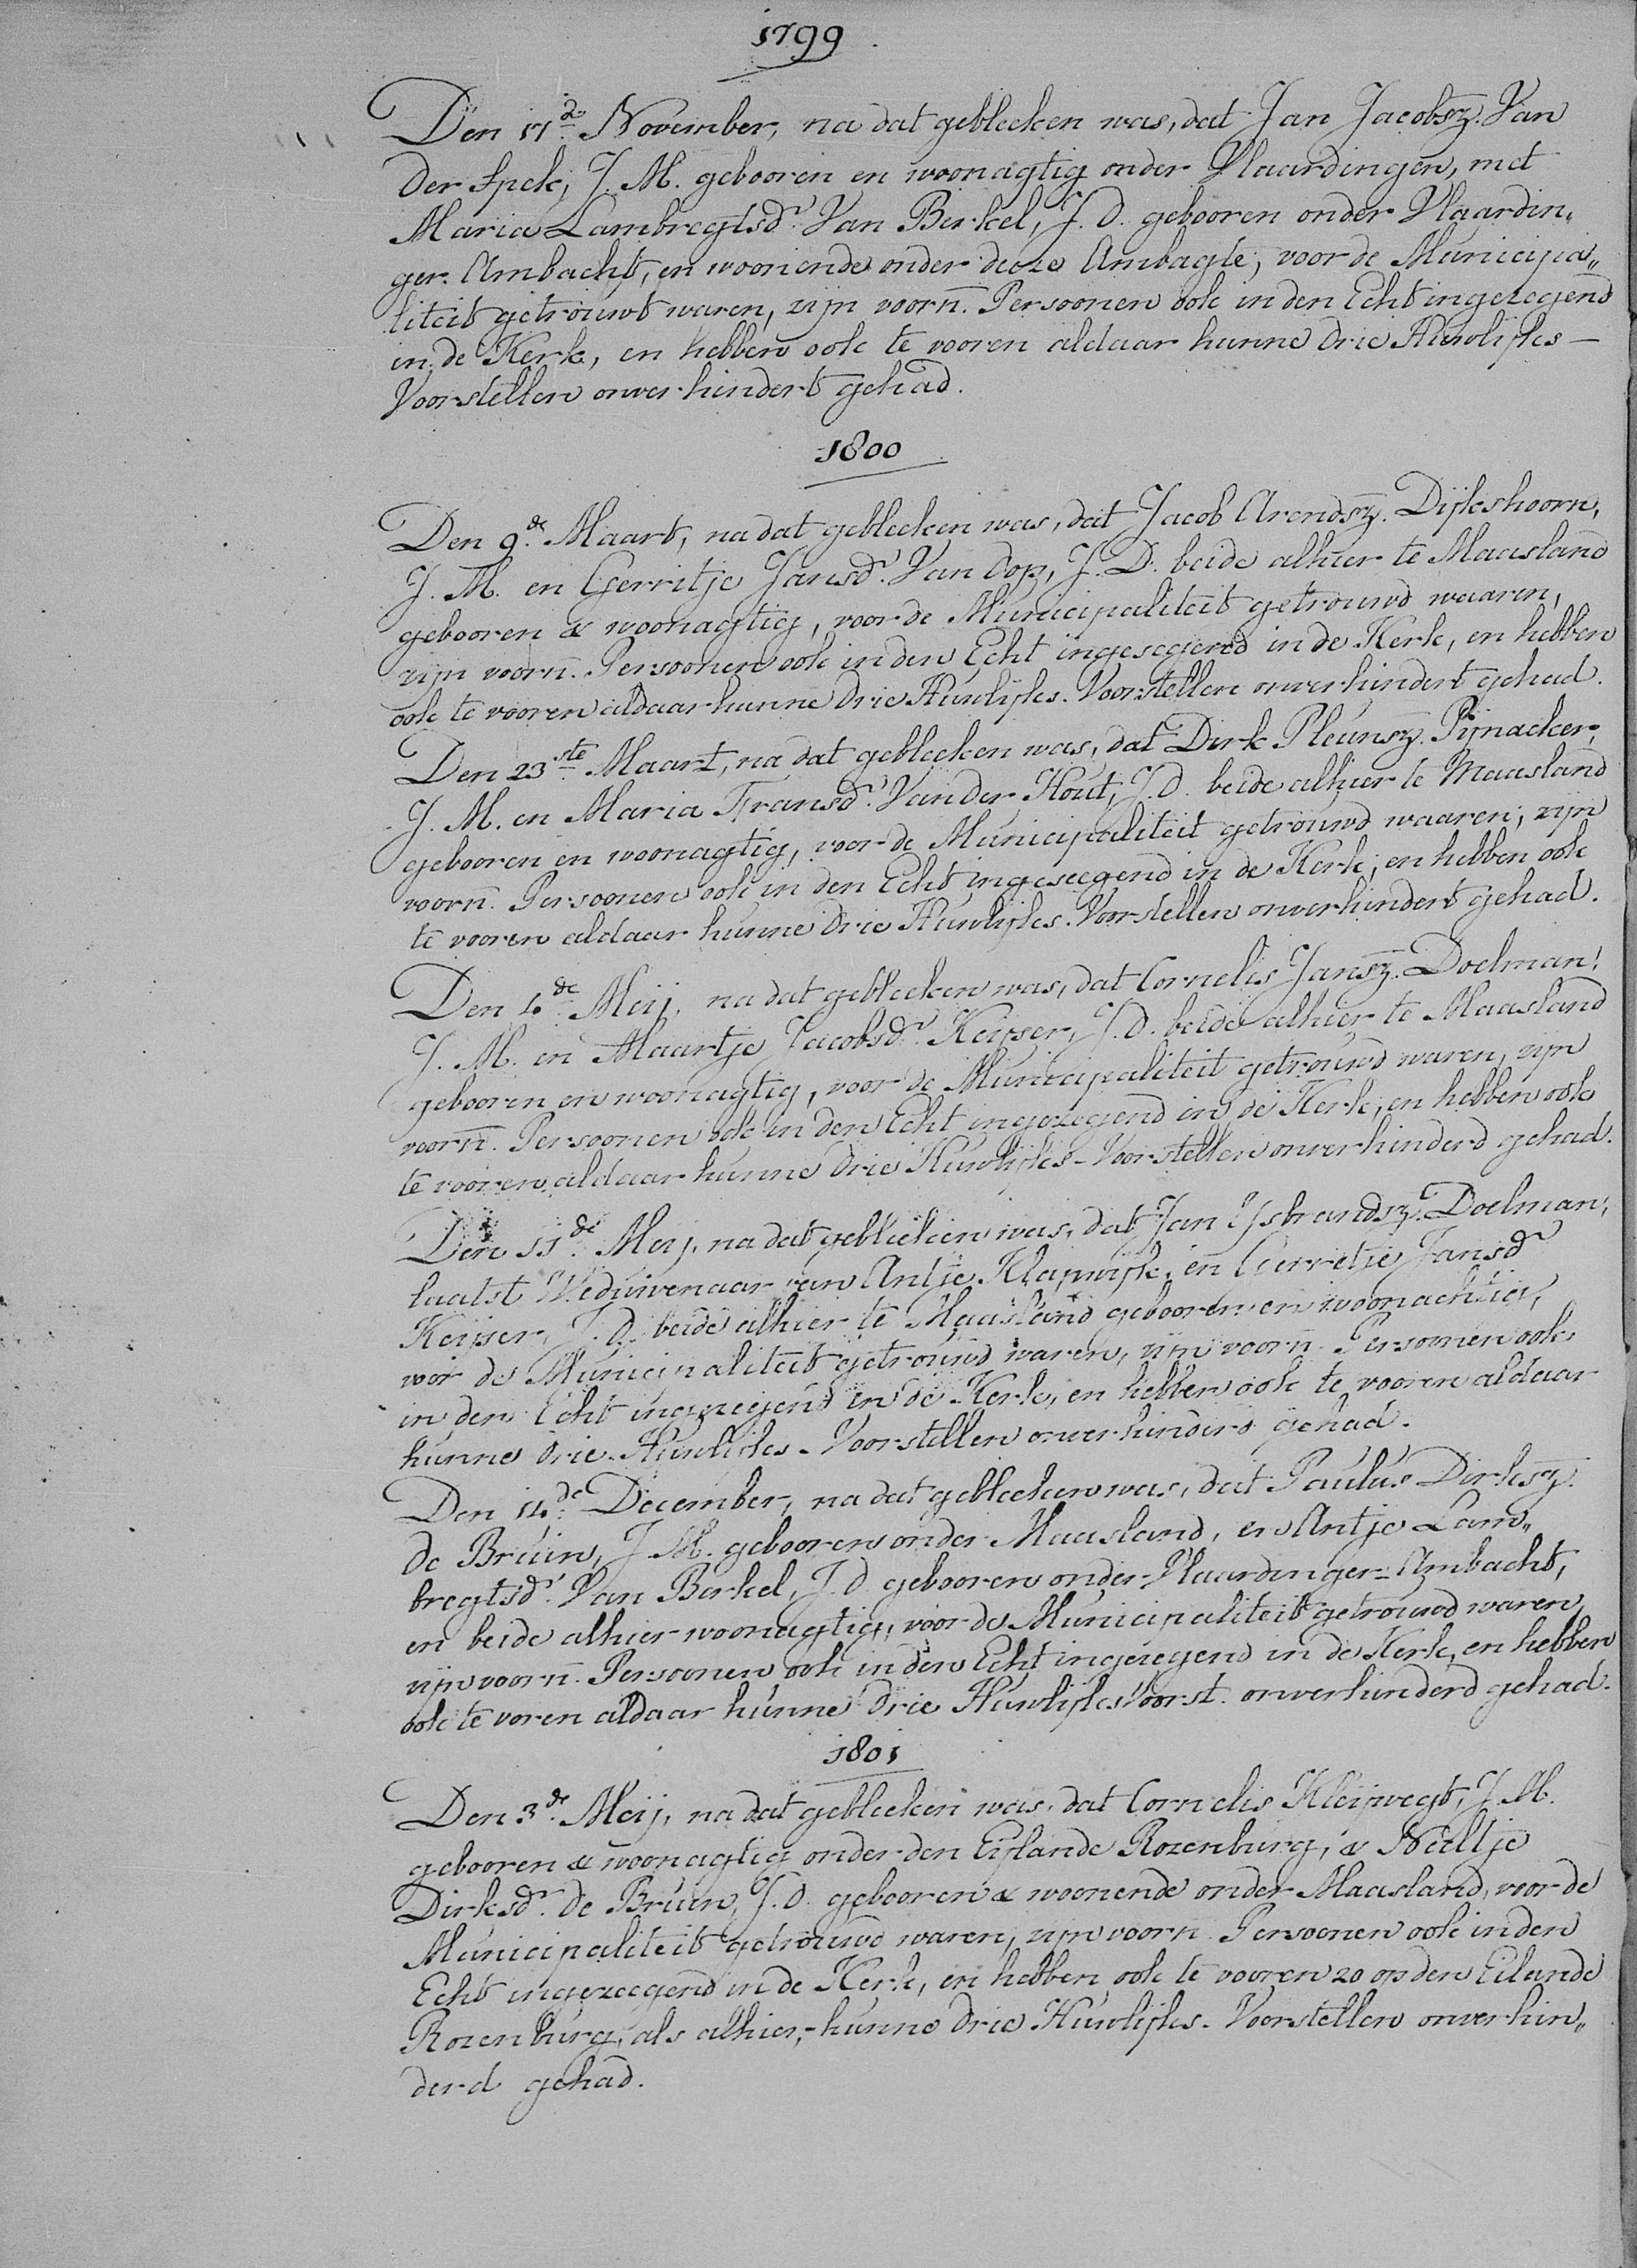 1799
Den 17de November, na dat gebleeken was, dat Jan Jacobsz. Van
der Spek, J. M. gebooren en woonagtig onder Vlaardingen, met
Maria Lambregtsdr. Van Berkel, J. D. gebooren onder Vlaardin„
ger-Ambacht, en woonende onder deeze Ambagte, voor de Municipa„
liteit getrouwt waren, zijn voorn. Persoonen ook in den Echt ingezegend
in de Kerk, en hebben ook te vooren aldaar hunne drie Huwlijks-
Voorstellen onverhindert gehad.
1800
Den 9de Maart, na dat gebleeken was, dat Jacob Arendsz. Dijkshoorn,
J. M. en Gerritje Jansdr. Van Dop, J. D. beide alhier te Maasland
gebooren & woonagtig, voor de Municipaliteit getrouwd waaren,
zijn voorn. Persoonen ook in den Echt ingesegend in de Kerk, en hebben
ook te vooren aldaar hunne drie Huwlijks-Voorstellen onverhindert gehad.
Den 23ste Maart, na dat gebleeken was, dat Dirk Pleunsz. Pijnacker,
J. M. en Maria Fransdr. Van der Hout, J. D. beide alhier te Maasland
gebooren en woonagtig, voor de Municipaliteit getrouwd waaren, zijn
voorn. Persoonen ook in den Echt ingeseegend in de Kerk, en hebben ook
te vooren aldaar hunne drie Huwlijks-Voorstellen onverhindert gehad.
Den 4de Meij, na dat gebleeken was, dat Cornelis Jansz. Doelman,
J. M. en Maartje Jacobsdr. Keijser, J. D. beide alhier te Maasland
gebooren en woonagtig, voor de Municipaliteit getrouwd waren, zijn
voorn. Persoonen ook in den Echt ingezegend in de Kerk, en hebben ook
te vooren aldaar hunne drie Huwlijks-Voorstellen onverhinderd gehad.
Den 11de Meij, na dat gebleeken was, dat Jan Ysbrandsz. Doelman,
laatst Weduwenaar van Antje Klapwijk, en Gerretje Jansdr
Keijser, J. D. beide alhier te Maasland gebooren en woonachtig,
voor de Municipaliteit getrouwd waren, zijn voorn. Persoonen ook
in den Echt ingezegend in de Kerk, en hebben ook te vooren aldaar
hunne drie Huwlijks-Voorstellen onverhinderd gehad.
Den 14de December, na dat gebleeken was, dat Paulus Dirksz.
de Bruin, J. M. gebooren onder Maasland, en Antje Lam„
bregtsdr. Van Berkel, J. D. gebooren onder Vlaardinger-Ambacht,
en beide alhier woonagtig, voor de Municipaliteit getrouwd waren,
zijn voorn. Persoonen ook in den Echt ingezegend in de Kerk, en hebben
ook te voren aldaar hunne drie Huwlijks Voorst. onverhinderd gehad.
1801
Den 3de Meij, na dat gebleeken was, dat Cornelis Kleijwegt, J. M.
gebooren & woonagtig onder den Eijlande Rozenburg, & Neeltje
Dirksdr. de Bruin, J. D. gebooren & woonende onder Maasland, voor de
Municipaliteit getrouwd waren, zijn voorn. Persoonen ook in den
Echt ingezeegend in de Kerk, en hebben ook te vooren zo op den Eilande
Rozenburg, als alhier, hunne drie Huwlijks-Voorstellen onverhin„
derd gehad.